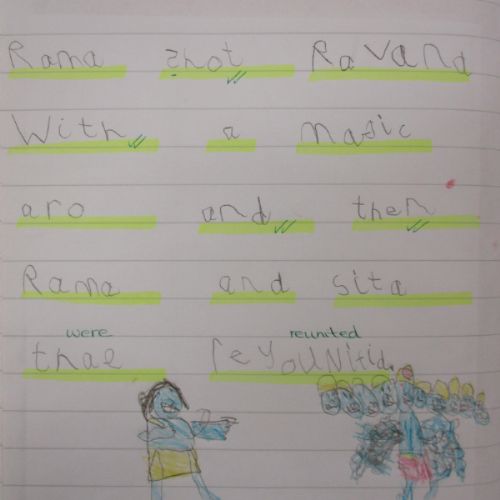 Rama shot Ravana
With a magic
aro and then
Rama and sita
were reunited
thae reyoUNitid.